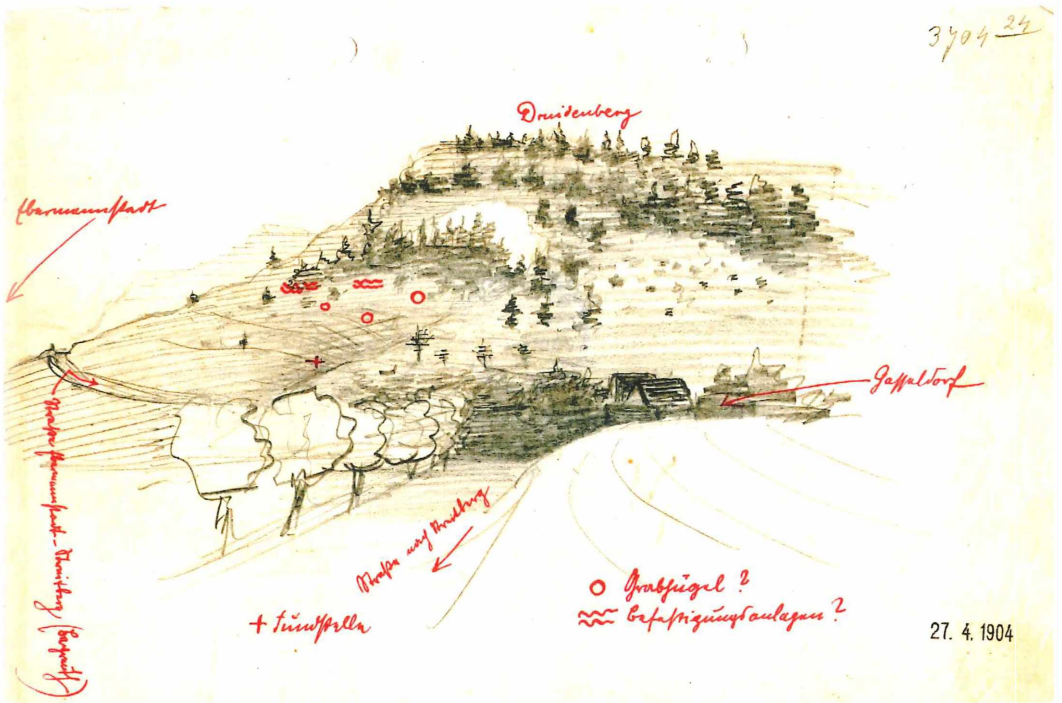 3704 24
Druidenberg
Ebermannstadt
Gasseldorf
Straße Ebermannstadt - Streitberg,
Straße nach Streitberg
+ Fundstelle
Grabhügel ?
Befestigungsanlagen ?
27. 4. 1904